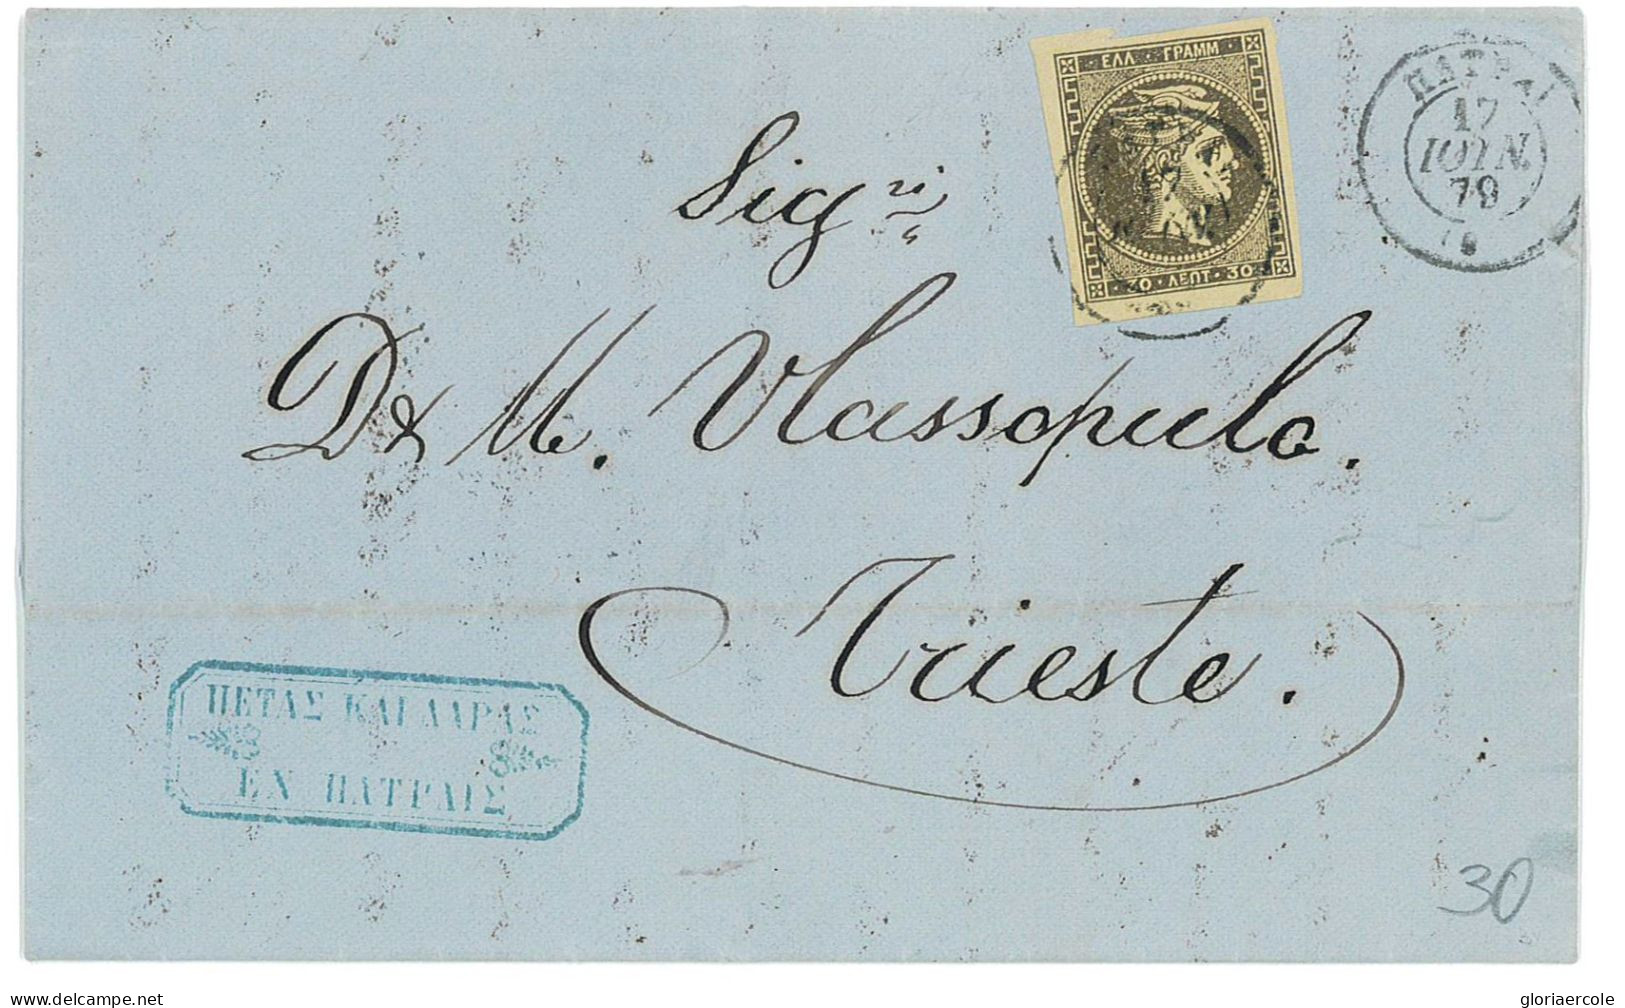 ΕΛΛ · ΓΡΑΜΜ
30 · ΛΕΠΤ · 30
ΠΑΤΡΑΙ
17
ΙΟΥΝ.
79
17
Sigri
D & M. Vlassopulo.
Trieste.
ΠΕΤΑΣ ΚΑΙ ΛΑΡΑΣ
ΕΝ ΠΑΤΡΑΙΣ
30
gloriaercole